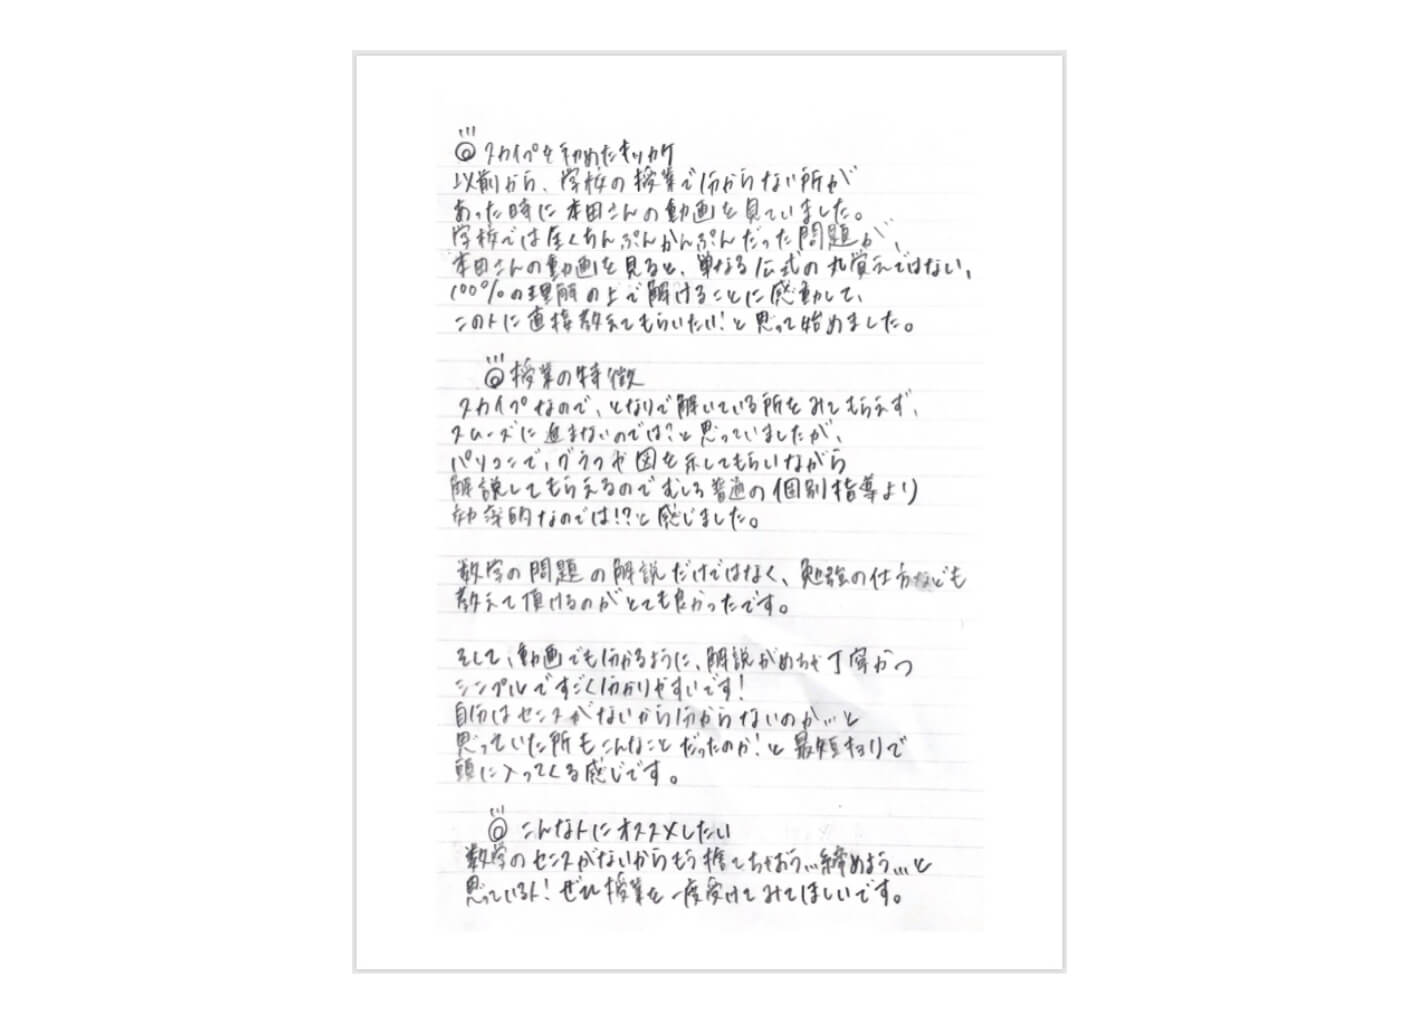 ◎ スカイプを初めたキッカケ
以前から、学校の授業で分からない所が
あった時に本田さんの動画を見ていました。
学校では全くちんぷんかんぷんだった問題が、
本田さんの動画を見ると、単なる公式の丸覚えではない、
100%の理解の上で解けることに感動して、
この人に直接教えてもらいたい!と思って始めました。
◎ 授業の特徴
スカイプなので、となりで解いている所をみてもらえず、
スムーズに進まないのでは?と思っていましたが、
パソコンで、グラフや図を示してもらいながら
解説してもらえるのでむしろ普通の個別指導より
効率的なのでは!?と感じました。
数学の問題の解説だけではなく、勉強の仕方なども
教えて頂けるのがとても良かったです。
そして、動画でも分かるように、解説がめちゃ丁寧かつ
シンプルですごく分かりやすいです!
自分はセンスがないから分からないのか…と
思っていた所もこんなことだったのか!と最短キョリで
頭に入ってくる感じです。
◎ こんな人にオススメしたい
数学のセンスがないからもう捨てちゃおう…締めよう…と
思っている人!ぜひ授業を一度受けてみてほしいです。